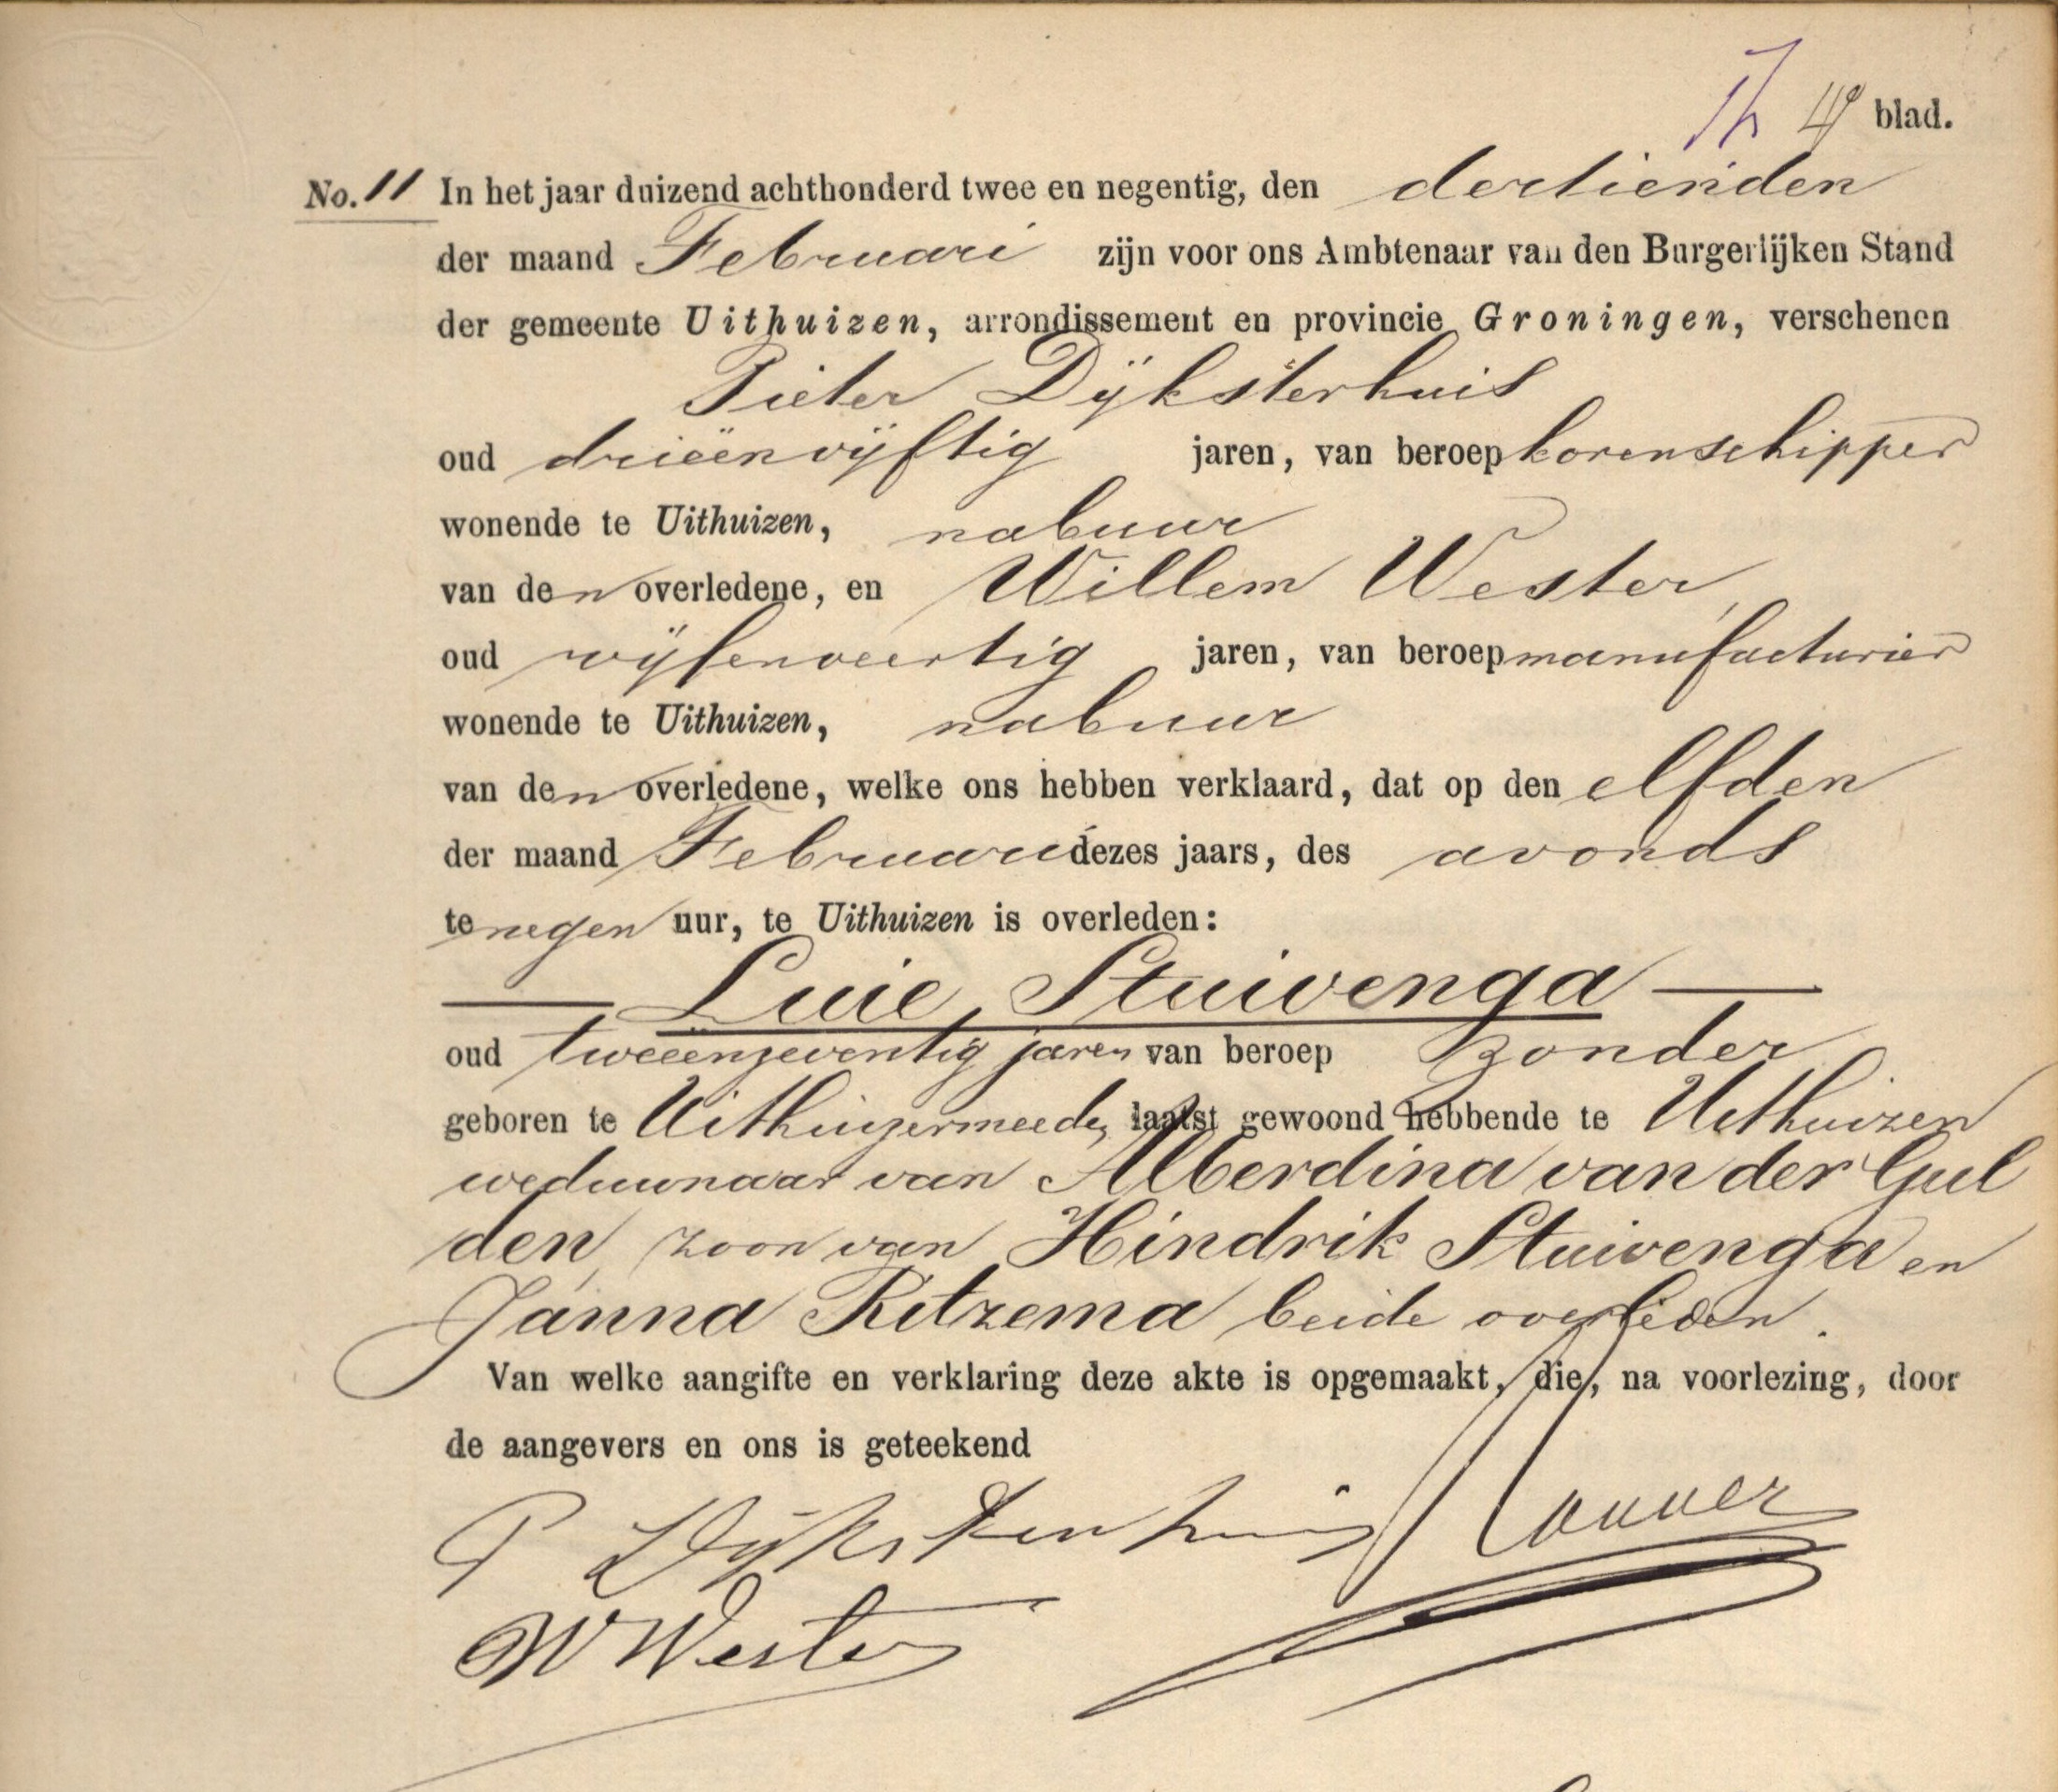 4e blad.
No. 11 In het jaar duizend achthonderd twee en negentig, den dertienden
der maand Februari zijn voor ons Ambtenaar van den Burgerlijken Stand
der gemeente Uithuizen, arrondissement en provincie Groningen, verschenen
Pieter Dijksterhuis
oud drieënvijftig jaren, van beroep korenschipper
wonende te Uithuizen, nabuur
van den overledene, en Willem Wester,
oud vijfenveertig jaren, van beroep manufacturier
wonende te Uithuizen, nabuur
van den overledene, welke ons hebben verklaard, dat op den elfden
der maand Februari dezes jaars, des avonds
te negen uur, te Uithuizen is overleden:
Luie Stuivenga
oud tweeënzeventig jaren van beroep zonder
geboren te Uithuizermeeden, laatst gewoond hebbende te Uithuizen
weduwnaar van Alberdina van der Gul
den, zoon van Hindrik Stuivenga en
Janna Ritzema beide overleden.
Van welke aangifte en verklaring deze akte is opgemaakt, die, na voorlezing, door
de aangevers en ons is geteekend
P Dijksterhuis
W Wester